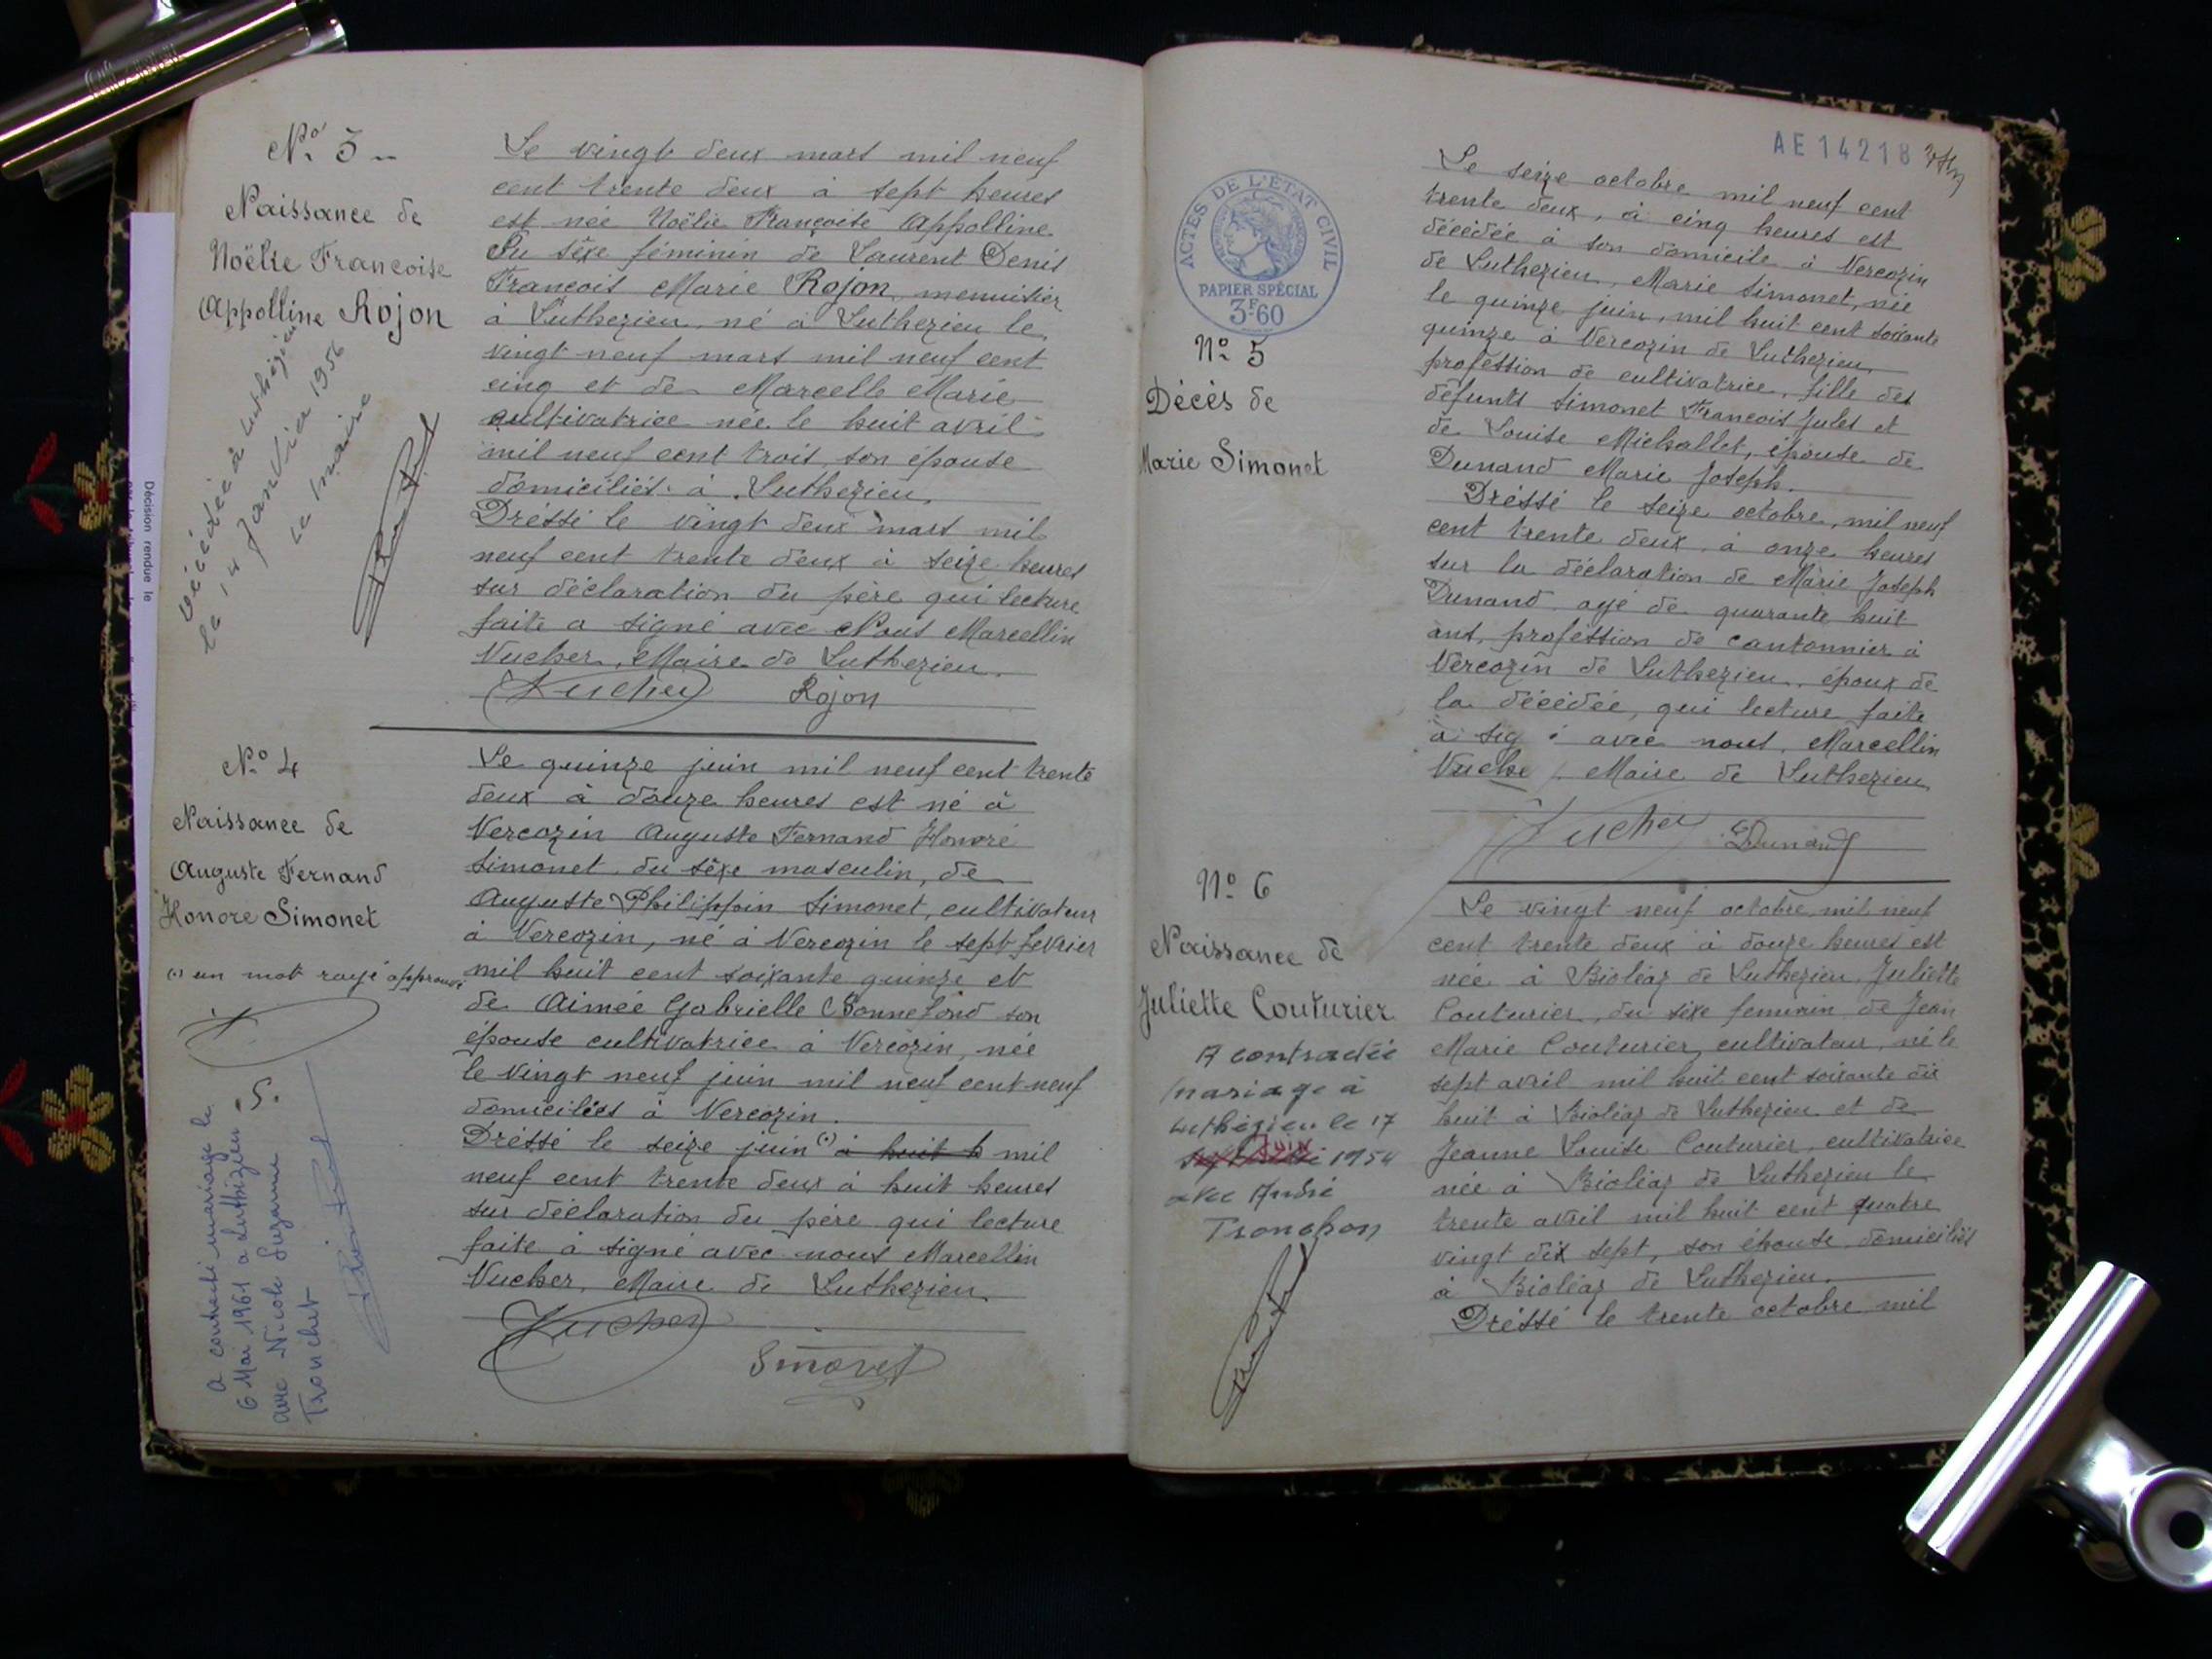 No 3
Naissance de
Noëlie Francoise
Appolline Rojon
Décédée à Luthézieu
le 14 Janvier 1956
Le Maire
Le vingt deux mars mil neuf
cent trente deux à sept heures
est née Noëlie Françoise Appolline
Du sèxe féminin de Laurent Denis
François Marie Rojon, menuisier
à Luthezieu, né à Luthezieu le
vingt neuf mars mil neuf cent
cinq et de Marcelle Marie
cultivatrice née le huit avril
mil neuf cent trois, son épouse
domiciliés à Luthezieu.
Dréssé le vingt deux mars mil
neuf cent trente deux à seize heures
sur déclaration du père qui lecture
faite a signé avec Nous Marcellin
Vucher, Maire de Luthezieu.
Vucher Rojon
Décision rendue le
No 4
Naissance de
Auguste Fernand
Honore Simonet
(.) un mot rayé approuvé
a contracté mariage le
6 Mai 1961 a Luthézieu
avec Nicole Suzanne S.
Tronchet
Le quinze juin mil neuf cent trente
deux à douze heures est né à
Vercozin Auguste Fernand Honoré
Simonet du sèxe masculin, de
Auguste Philippin Simonet, cultivateur
à Vercozin, né à Vercozin le sept fevrier
mil huit cent soixante quinze et
de Aimée Gabrielle Bonnefond son
épouse cultivatrice à Vercozin, née
le vingt neuf juin mil neuf cent neuf
domiciliés à Vercozin.
Dréssé le seize juin (.) à huit h mil
neuf cent trente deux à huit heures
sur déclaration du père qui lecture
faite à signé avec nous Marcellin
Vucher, Maire de Luthezieu.
Vucher
Simonet
AE 14218
ACTES DE L'ÉTAT CIVIL
PAPIER SPÉCIAL
3F60
No 5
Décès de
Marie Simonet
Le seize octobre mil neuf cent
trente deux, à cinq heures est
décédée à son domicile à Vercozin
de Luthezieu, Marie Simonet, née
le quinze juin, mil huit cent soixante
quinze à Vercozin de Luthezieu
profession de cultivatrice, fille des
défunts Simonet François Jules et
de Louise Michallet, épouse de
Dunand Marie Joseph.
Dréssé le seize octobre, mil neuf
cent trente deux, à onze heures
sur la déclaration de Marie Joseph
Dunand agé de quarante huit
ans, profession de cantonnier à
Vercozin de Luthezieu, époux de
la décédée, qui lecture faite
à sig é avec nous, Marcellin
Vuche Maire de Luthezieu
Vucher Dunand
No 6
Naissance de
Juliette Couturier
A contractée
mariage à
Luthézieu le 17
Juin 1954
avec André
Tronchon
Le vingt neuf octobre mil neuf
cent trente deux à douze heures est
née à Bioléaz de Luthezieu Juliette
Couturier, du sèxe feminin de Jean
Marie Couturier cultivateur, né le
sept avril mil huit cent soixante dix
huit à Bioléaz de Luthezieu et de
Jeanne Louise Couturier, cultivatrice
née à Bioléaz de Luthezieu le
trente avril mil huit cent quatre
vingt dix sept, son épouse domiciliés
à Bioléaz de Luthezieu.
Dréssé le trente octobre mil